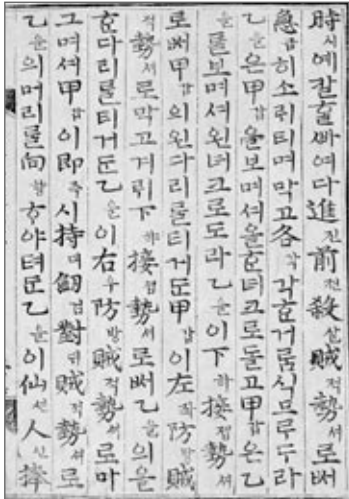 時시예갈흘ᄲᅢ여다進진前젼殺살賊적勢셰로ᄡᅥ
急급히소ᄅᆡ티며막고各각각ᄒᆞᆫ거ᄅᆞᆷ식므르두라
乙을은甲갑을보며셔올ᄒᆞᆫ녀크로돌고甲갑은乙
을를보며셔왼녀크로도라乙을이下하接졉勢셰
로ᄡᅥ甲갑의왼다리를티거든甲갑이左좌防방賊
적勢셰로막고거려下하接졉勢셰로ᄡᅥ乙을의올
ᄒᆞᆫ다리를티거든乙을이右우防방賊적勢셰로마
그며셔甲갑이即즉시持디釼검對ᄃᆡ賊적勢셰로
乙을의머리를向향ᄒᆞ야텨든乙을이仙션人인捧